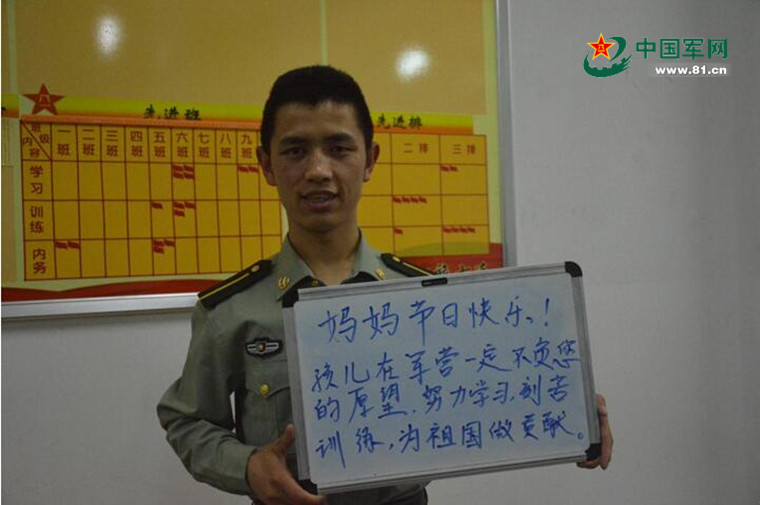 中国军网
www.81.cn
先进班
先进排
班级
内容
一班 二班 三班 四班 五班 六班 七班 八班 九班
二排 三排
学习
训练
内务
妈妈节日快乐！
孩儿在军营一定不负您
的厚望，努力学习，刻苦
训练，为祖国做贡献。